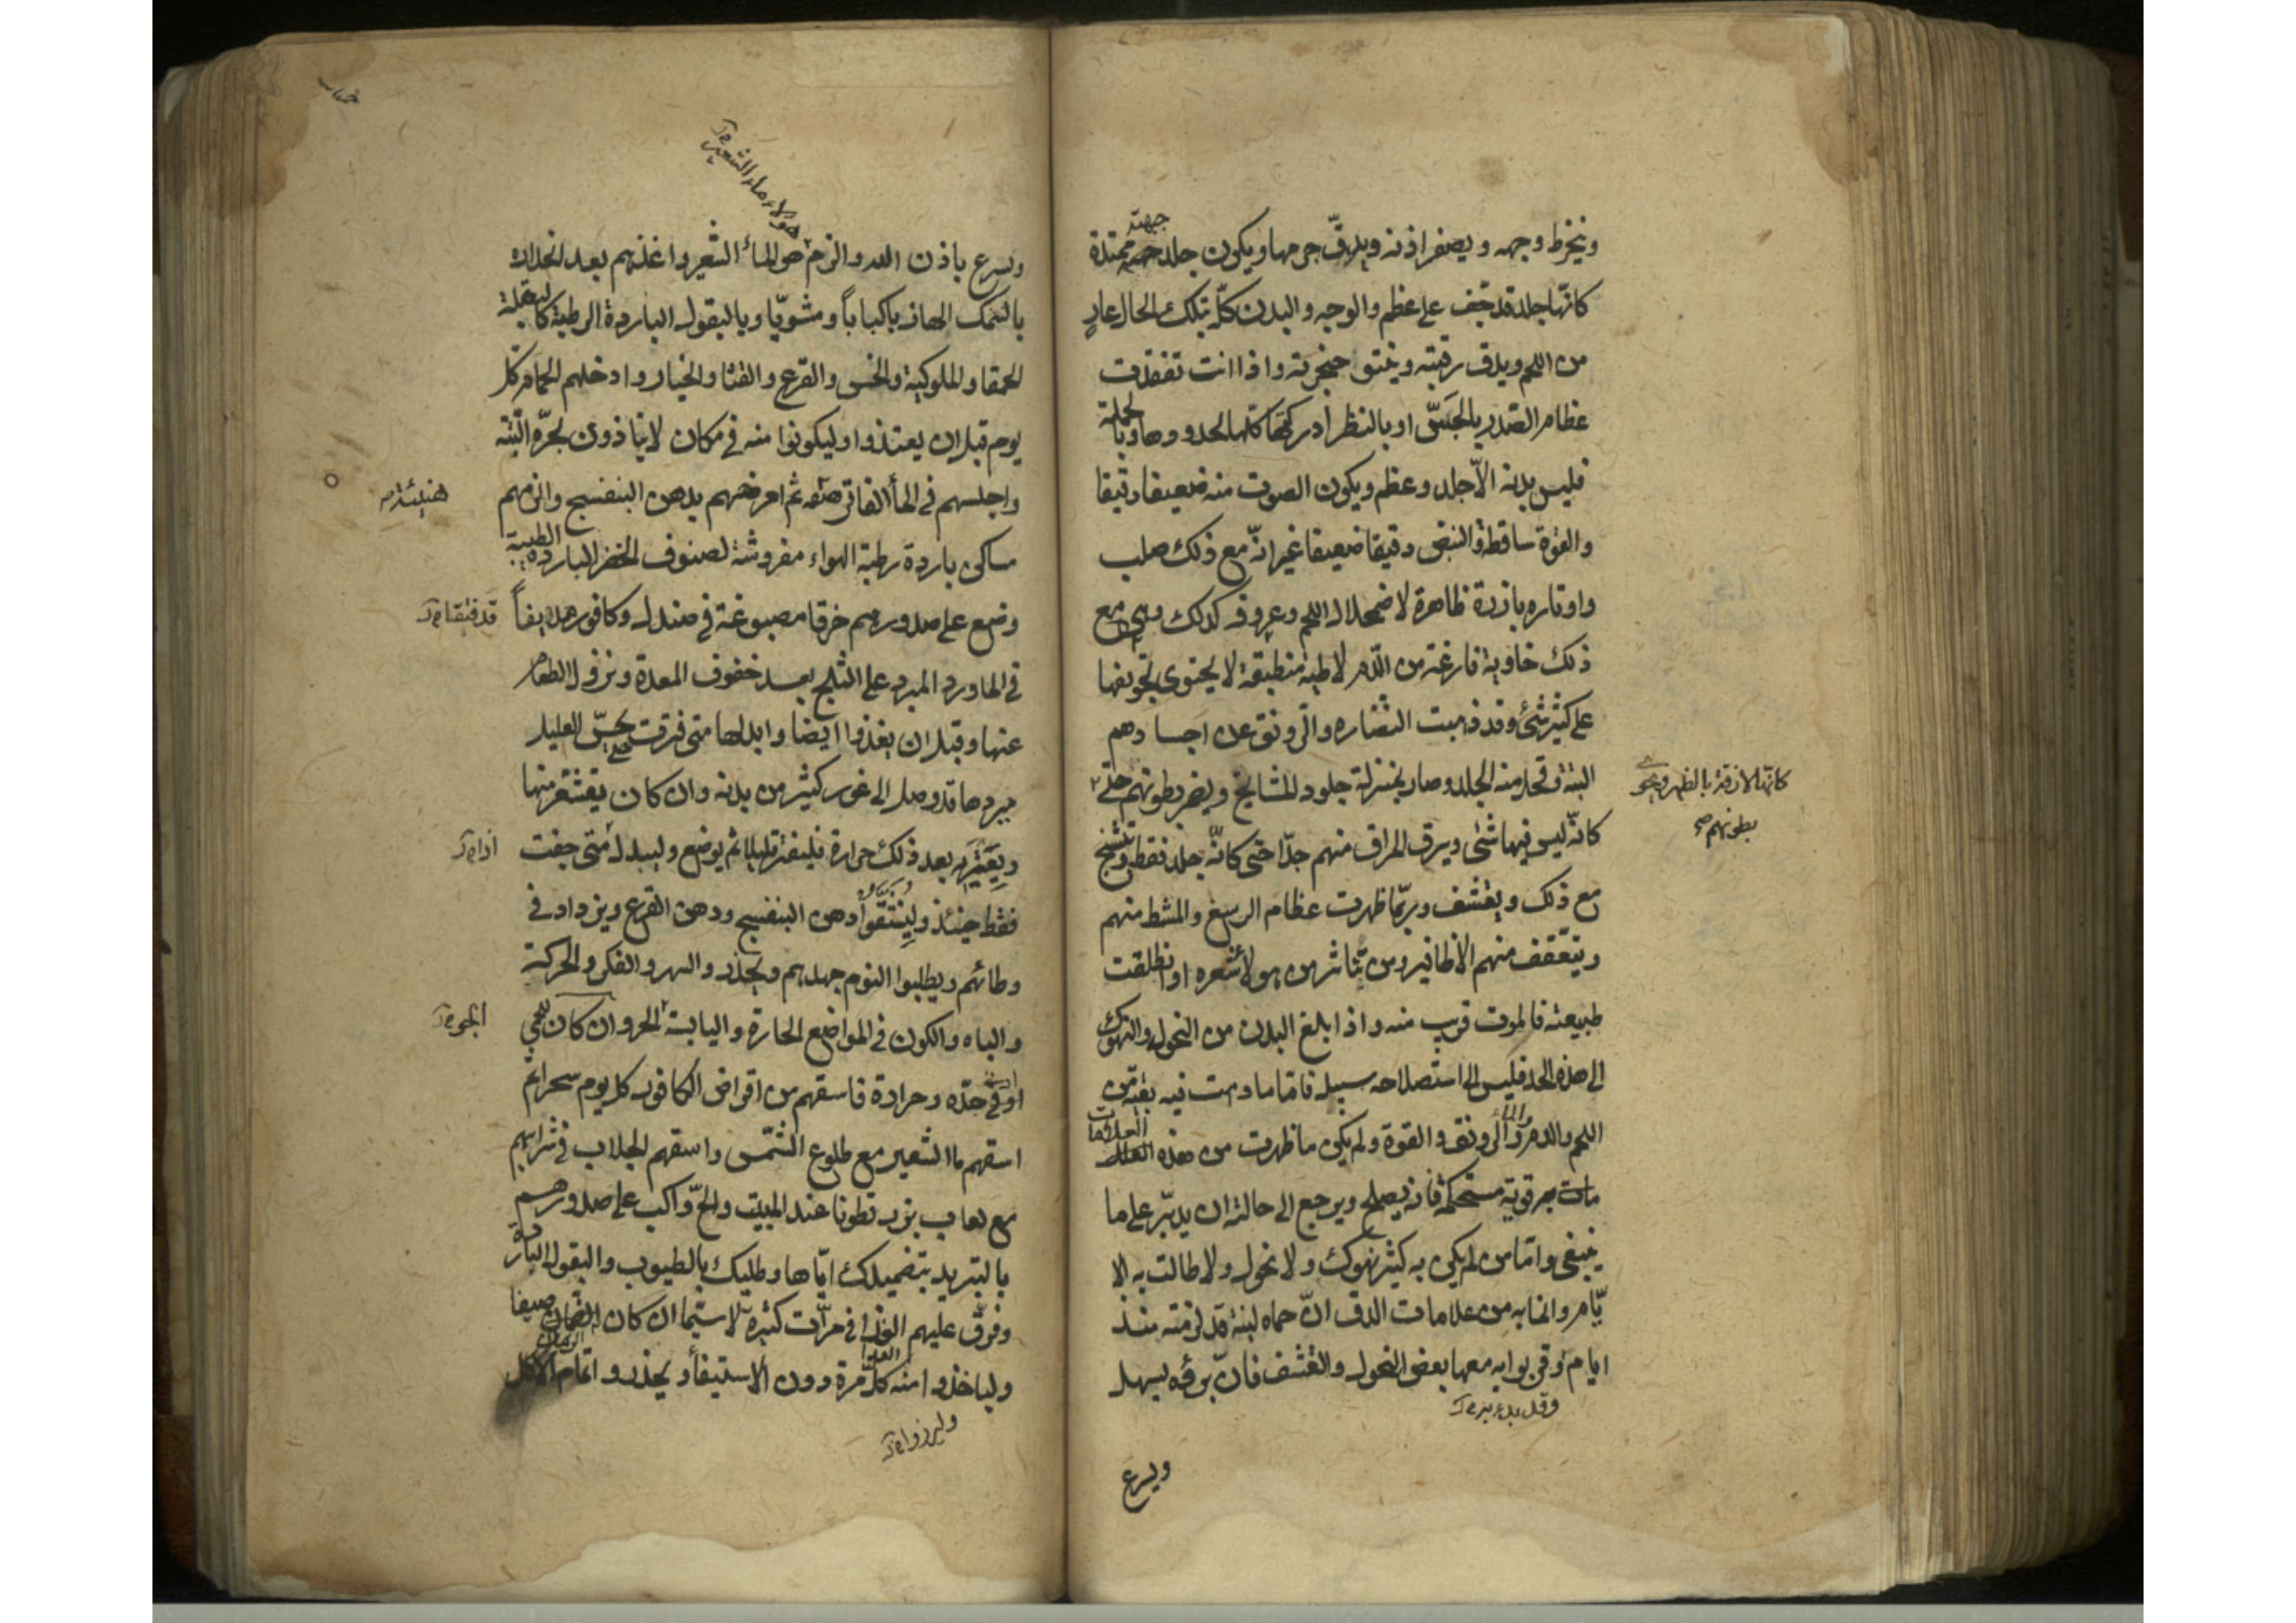 وينخرط وجهه ويصفر اذنه ويدقّ جرمها ويكون جلد جبهته ممتدة
كانّها جلد قد جّف على عظم والوجه والبدن كلّه بتلك الحال عارٍ
من اللحم ويدق رقبته وينتو حنجرته واذا انت تفقدت
عظام الصّدر بالجَسّ او بالنظر أدركتها كلّها لحدودها وبالجملة
فليس بدنه الّا جلد وعظم ويكون الصوت منه ضعيفا دقيقا
والقوّة ساقطة والنبض دقيقا ضعيفا غير انّه مع ذلك صلب
واوتاره بارزة ظاهرة لاضمحلال اللحم وعروقه كذلك وهى مع
ذلك خاوية فارغة من الدّم لاطية منطبقة لا يحتوى تجويفها
على كثير شئ وقد ذهبت النضاره والرونق عن اجسادهم
البتة وقحل منه الجلد وصار بمنزلة جلود المشايخ ويضمر بطونهم حتى
كانّه ليس فيها شئى ويرق المراق منهم جدّا حتى كانّه جلد فقط وتشنج
مع ذلك ويقشف وربّما ظهرت عظام الرسغ والمشط منهم
ويتعّقف منهم الاظافير ومن تناثر من هولاء شعره او انطلقت
طبيعته فالموت قريب منه واذا بلغ البدن من النحول والنهوك
الى هذه الحد فليس الى استصلاحه سبيل فامّا ما دامت فيه بقيّة من
اللحم والدم والماء والرونق والقوة ولم يكن ما ظهرت من هذه العلامات
قوية مستحكمة فانه يصلح ويرجع الى حالته ان يدبّر على ما
ينبغى وامّا من لم يكن به كثير نهوك ولا نحول ولا طالت به الا
يّام وانما به من علامات الدق انّ حماه لينة قد لزمته منذ
ايام وقربوا به معها بعض النحول والقشف فانّ برؤه يسهل
ويسرع
كانّها لازقة بالظهر
بطونهم صح
ويسرع باذن الله والزم هولاء ماء الشعير واغذهم بعد انحداره
بالسّمك الهازبا كبابًا ومشويّا وبالبقول الباردة الرطبة كالبقلة
الحمقا والملوكية والخس والقرع والقثا والخيار وادخلهم الحمام كل
يوم قبل ان يغتذوا وليكونوا منه فى مكان لا يتاذون لحرّه البتّه
واجلسهم فى الماء الفاتر ثم امرخهم بدهن البنفسج والزمهم
مساكن باردة رطبة الهواء مفروشة لصنوف الخضر الباردة الطيبة
وضع على صدورهم خرقا مصبوغة فى صندل وكافور
فى الماورد المبرد على الثلج بعد خفوف المعدة ونزول الطعام
عنها وقبل ان يغذوا ايضا وابدلها متى فترت يحسّ العليل
ببردها قد وصل الى غور كثير من بدنه وان كان يقشعر منها
ويعتريه بعد ذلك حرارة فليفتر قليلا ثم يوضع وليبدل متى جفت
فقط حينئذ وليستنشقوا دهن البنفسج ودهن القرع ويزداد فى
وطائهم ويطلبوا النوم جهدهم ويحذر والسهر والفكر والحركة
والباه والكون فى المواضع الحارة واليابسة الحر وان كان
او فى حدّه وحرارة فاسقهم من اقراص الكافور كل يوم سحرا ثم
اسقهم ماالشعير مع طلوع الشّمس واسقهم الجلاب فى شرابهم
مع لعاب بزر قطونا عند المبيت والحّ واكب على صدورهم
بالتبريد بتضميدك ايّاها وطليك بالطيوب والبقول الباردة
وفرّق عليهم الغذا فى مرّات كثيرة لا سيّما ان كان الزمان صيفا
ولياخذوا منه كلّ مرة دون الاستيفاء ويحذروا اتمام الاكل